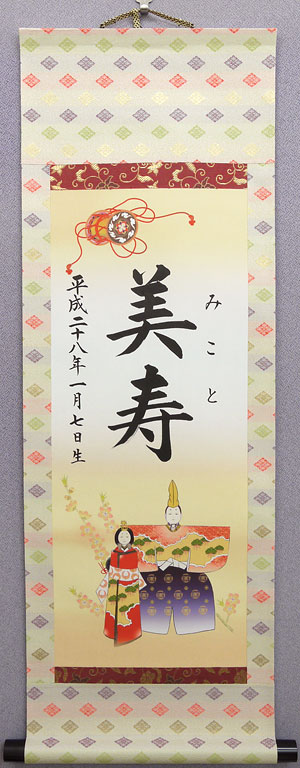 みこと
美寿
平成二十八年一月七日生